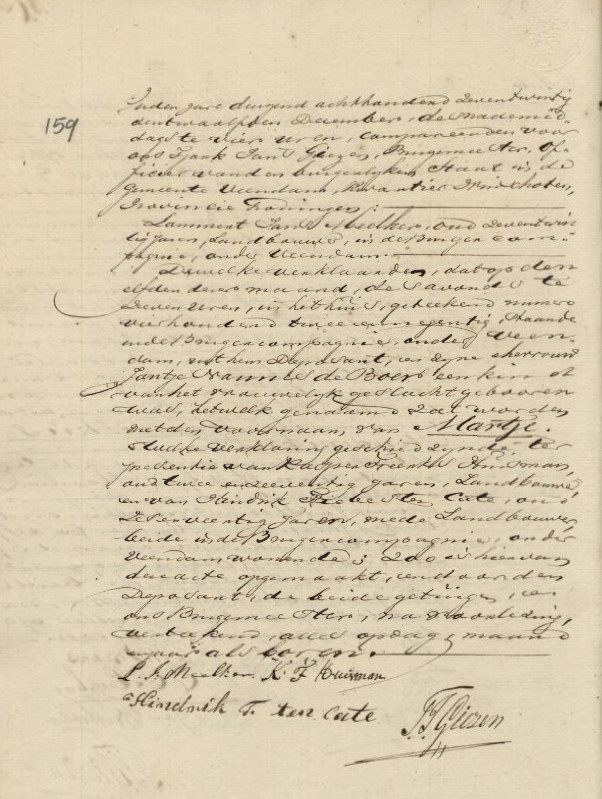 159
In den jare duizend achthonderd zeventwintig
den twaalfden December, des nademid-
dags te vier uren, compareerden voor
ons Tjaak Jans Giezen, Burgemeester, of-
ficier van den burgerlyken Staat in de
Gemeente Veendam, Kwartier Winschoten,
Provincie Groningen:
Lammert Jans Meelker, oud zeventwin-
tig jaren, Landbouwer, in de Burgercom-
pagnie, onder Veendam.
Dewelke verklaarden, dat op den
elfden dezer maand, des avonds te
zeven uren, in het huis, geteekend numero
vierhonderd twee en negentig, staande
in de Burgercompagnie, onder Veen-
dam, uit hem Deposant, en zyne ehevrouw
Jantje Hannes de Boer een kind
van het vrouwelyk geslacht gebooren
was, hetwelk genaamd zal worden
met den voornaam, van Martje.
Welke verklaring geschied zynde, ter
presentie van Kasper Freerks Huisman,
oud twee en zeventig jaren, Landbouwer
en van Hindrik ten Cate, oud
zes en veertig jaren, mede Landbouwer
beide in de Burgercompagnie, onder
Veendam wonende; zoo is hiervan
deze acte opgemaakt, en door den
Deposant, de beide getuigen, en
ons Burgemeester, na voorlezing,
verteekend, alles op dag, maand
en jaar als boven.
L. J. Meelker K. F. Huisman
Hindrik T. ten Cate
T. J. Giezen